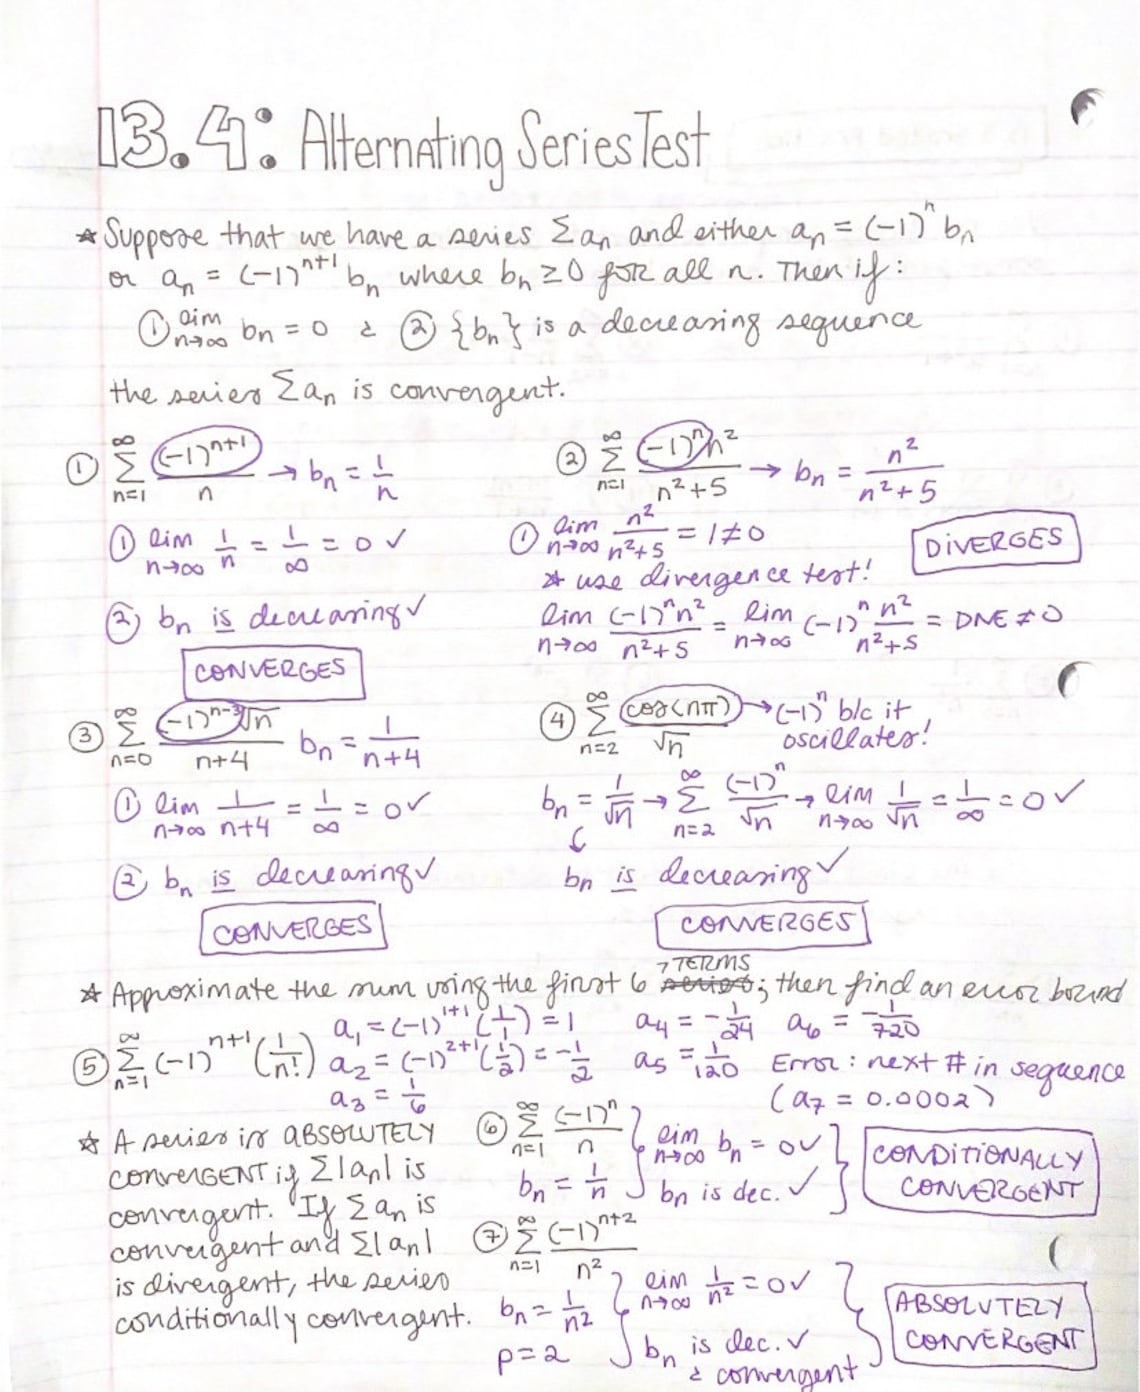 13.4: Alternating Series Test
☆ Suppose that we have a series Σaₙ and either aₙ = (-1)ⁿ bₙ
or aₙ = (-1)ⁿ⁺¹ bₙ where bₙ ≥ 0 for all n. Then if:
① lim n→∞ bₙ = 0 & ② {bₙ} is a decreasing sequence
the series Σaₙ is convergent.
① ∞ Σ n=1 (-1)ⁿ⁺¹/n → bₙ = 1/n
① lim n→∞ 1/n = 1/∞ = 0 ✓
② bₙ is decreasing ✓
CONVERGES
② ∞ Σ n=1 (-1)ⁿn²/n²+5 → bₙ = n²/n²+5
① lim n→∞ n²/n²+5 = 1 ≠ 0
DIVERGES
☆ use divergence test!
lim n→∞ (-1)ⁿn²/n²+5 = lim n→∞ (-1)ⁿ n²/n²+5 = DNE ≠ 0
③ ∞ Σ n=0 (-1)ⁿ⁻³√n/n+4 bₙ = 1/n+4
① lim n→∞ 1/n+4 = 1/∞ = 0 ✓
② bₙ is decreasing ✓
CONVERGES
④ ∞ Σ n=2 cos(nπ)/√n → (-1)ⁿ b/c it
oscillates!
bₙ = 1/√n → ∞ Σ n=2 (-1)ⁿ/√n → lim n→∞ 1/√n = 1/∞ = 0 ✓
bₙ is decreasing ✓
CONVERGES
☆ Approximate the sum using the first 6 TERMS; then find an error bound
⑤ ∞ Σ n=1 (-1)ⁿ⁺¹(1/n!)
a₁ = (-1)¹⁺¹(1/1) = 1
a₂ = (-1)²⁺¹(1/2) = -1/2
a₃ = 1/6
a₄ = -1/24 a₆ = -1/720
a₅ = 1/120 Error: next # in sequence
(a₇ = 0.0002)
☆ A series is ABSOLUTELY
convergent if Σ|aₙ| is
convergent. If Σaₙ is
convergent and Σ|aₙ|
is divergent, the series
conditionally convergent.
⑥ ∞ Σ n=1 (-1)ⁿ/n
bₙ = 1/n
lim n→∞ bₙ = 0 ✓
bₙ is dec. ✓
CONDITIONALLY
CONVERGENT
⑦ ∞ Σ n=1 (-1)ⁿ⁺²/n²
bₙ = 1/n²
p = 2
lim n→∞ 1/n² = 0 ✓
bₙ is dec. ✓
& convergent
ABSOLUTELY
CONVERGENT